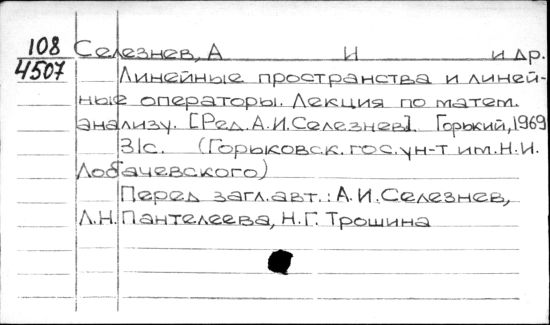 108 Селезнев, А И и др.
4507 Линейные пространства и линей-
ные операторы. Лекция по матем.
анализу. [Ред. А.И.Селезнев]. Горький, 1969
31с. (Горьковск. гос. ун-т им. Н.И.
Лобачевского)
Перед загл. авт.: А.И.Селезнев,
Л.Н. Пантелеева, Н.Г. Трошина